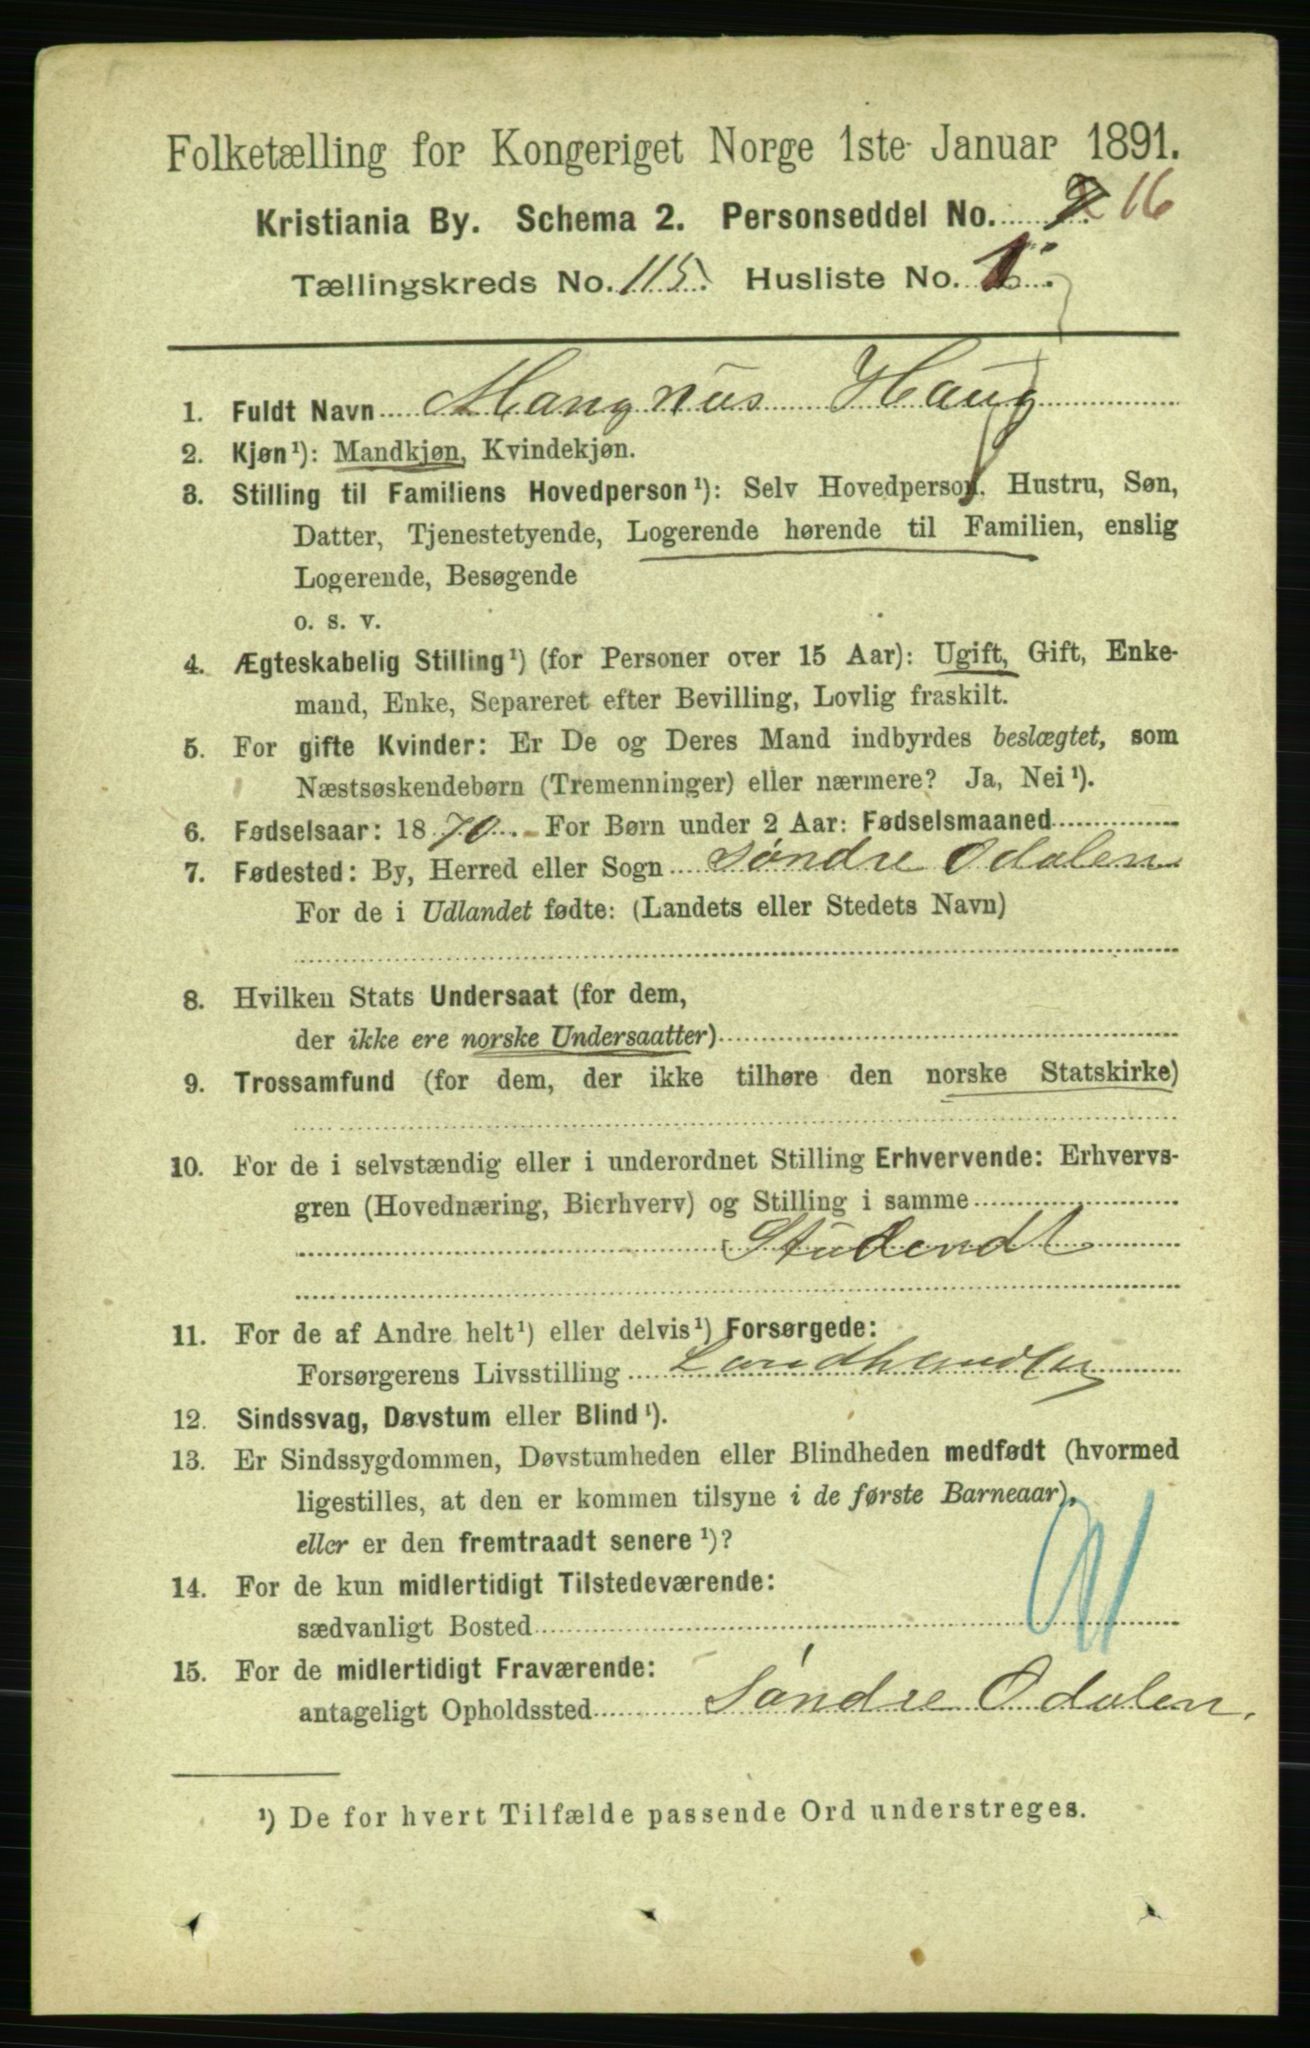 Folketælling for Kongeriget Norge 1ste Januar 1891.
Kristiania By. Schema 2. Personseddel No. 16
Tællingskreds No. 115. Husliste No. 1.
1. Fuldt Navn Mangnus Haug
2. Kjøn¹): Mandkjøn, Kvindekjøn.
3. Stilling til Familiens Hovedperson¹): Selv Hovedperson, Hustru, Søn,
Datter, Tjenestetyende, Logerende hørende til Familien, enslig
Logerende, Besøgende
o. s. v.
4. Ægteskabelig Stilling¹) (for Personer over 15 Aar): Ugift, Gift, Enke-
mand, Enke, Separeret efter Bevilling, Lovlig fraskilt.
5. For gifte Kvinder: Er De og Deres Mand indbyrdes beslægtet, som
Næstsøskendebørn (Tremenninger) eller nærmere? Ja, Nei¹).
6. Fødselsaar: 1870. For Børn under 2 Aar: Fødselsmaaned
7. Fødested: By, Herred eller Sogn Søndre Odalen
For de i Udlandet fødte: (Landets eller Stedets Navn)
8. Hvilken Stats Undersaat (for dem,
der ikke ere norske Undersaatter)
9. Trossamfund (for dem, der ikke tilhøre den norske Statskirke)
10. For de i selvstændig eller i underordnet Stilling Erhvervende: Erhvervs-
gren (Hovednæring, Bierhverv) og Stilling i samme
Studendt
11. For de af Andre helt¹) eller delvis¹) Forsørgede:
Forsørgerens Livsstilling Landhandler
12. Sindssvag, Døvstum eller Blind¹).
13. Er Sindssygdommen, Døvstumheden eller Blindheden medfødt (hvormed
ligestilles, at den er kommen tilsyne i de første Barneaar),
eller er den fremtraadt senere¹)?
14. For de kun midlertidigt Tilstedeværende:
sædvanligt Bosted
15. For de midlertidigt Fraværende:
antageligt Opholdssted Søndre Odalen.
¹) De for hvert Tilfælde passende Ord understreges.